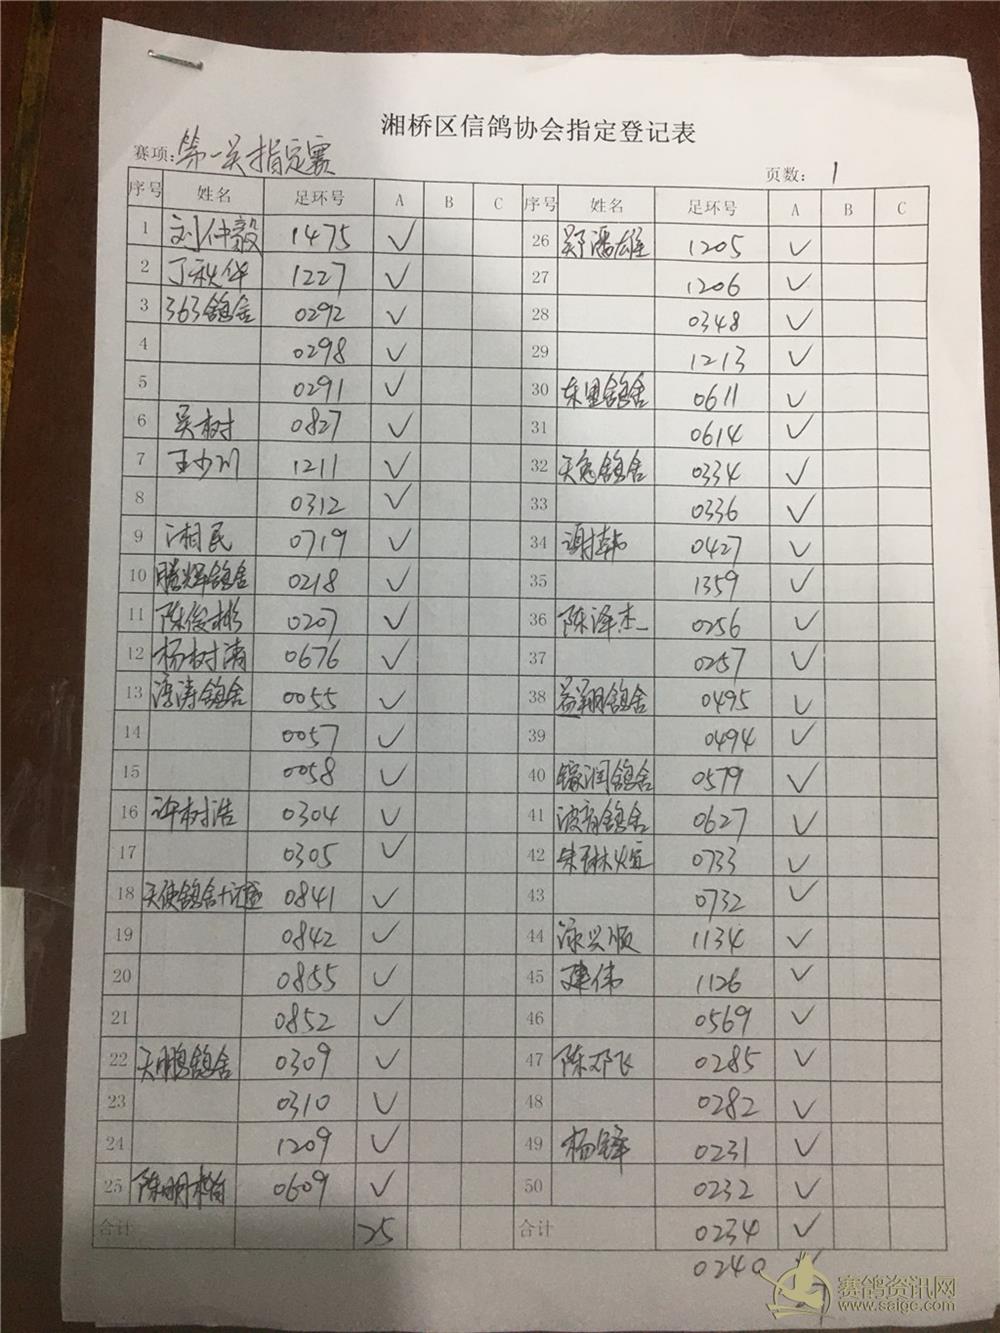 湘桥区信鸽协会指定登记表
赛项: 第一关指定赛 页数: 1
序号 姓名 足环号 A B C 序号 姓名 足环号 A B C
1 刘仲毅 1475 ✓ 26 郑潘雄 1205 ✓
2 丁秋华 1227 ✓ 27 1206 ✓
3 363鸽舍 0292 ✓ 28 0348 ✓
4 0298 ✓ 29 1213 ✓
5 0291 ✓ 30 东里鸽舍 0611 ✓
6 吴树 0827 ✓ 31 0614 ✓
7 王少川 1211 ✓ 32 天 鸽舍 0334 ✓
8 0312 ✓ 33 0336 ✓
9 湘民 0719 ✓ 34 谢韩 0427 ✓
10 腾辉鸽舍 0218 ✓ 35 1359 ✓
11 陈俊彬 0207 ✓ 36 陈泽杰 0256 ✓
12 杨树清 0676 ✓ 37 0257 ✓
13 涛鸽舍 0055 ✓ 38 益翔鸽舍 0495 ✓
14 0057 ✓ 39 0494 ✓
15 0058 ✓ 40 润鸽舍 0579 ✓
16 许树浩 0304 ✓ 41 波 鸽舍 0627 ✓
17 0305 ✓ 42 朱琳烜 0733 ✓
18 天使鸽舍+ 0841 ✓ 43 0732 ✓
19 0842 ✓ 44 泳兴顺 1134 ✓
20 0855 ✓ 45 建伟 1126 ✓
21 0852 ✓ 46 0569 ✓
22 天鹏鸽舍 0309 ✓ 47 陈邓飞 0285 ✓
23 0310 ✓ 48 0282 ✓
24 1209 ✓ 49 杨锋 0231 ✓
25 陈明柏 0609 ✓ 50 0232 ✓
合计 25 合计 0234 ✓
0240 ✓
赛鸽资讯网
www.saigc.com